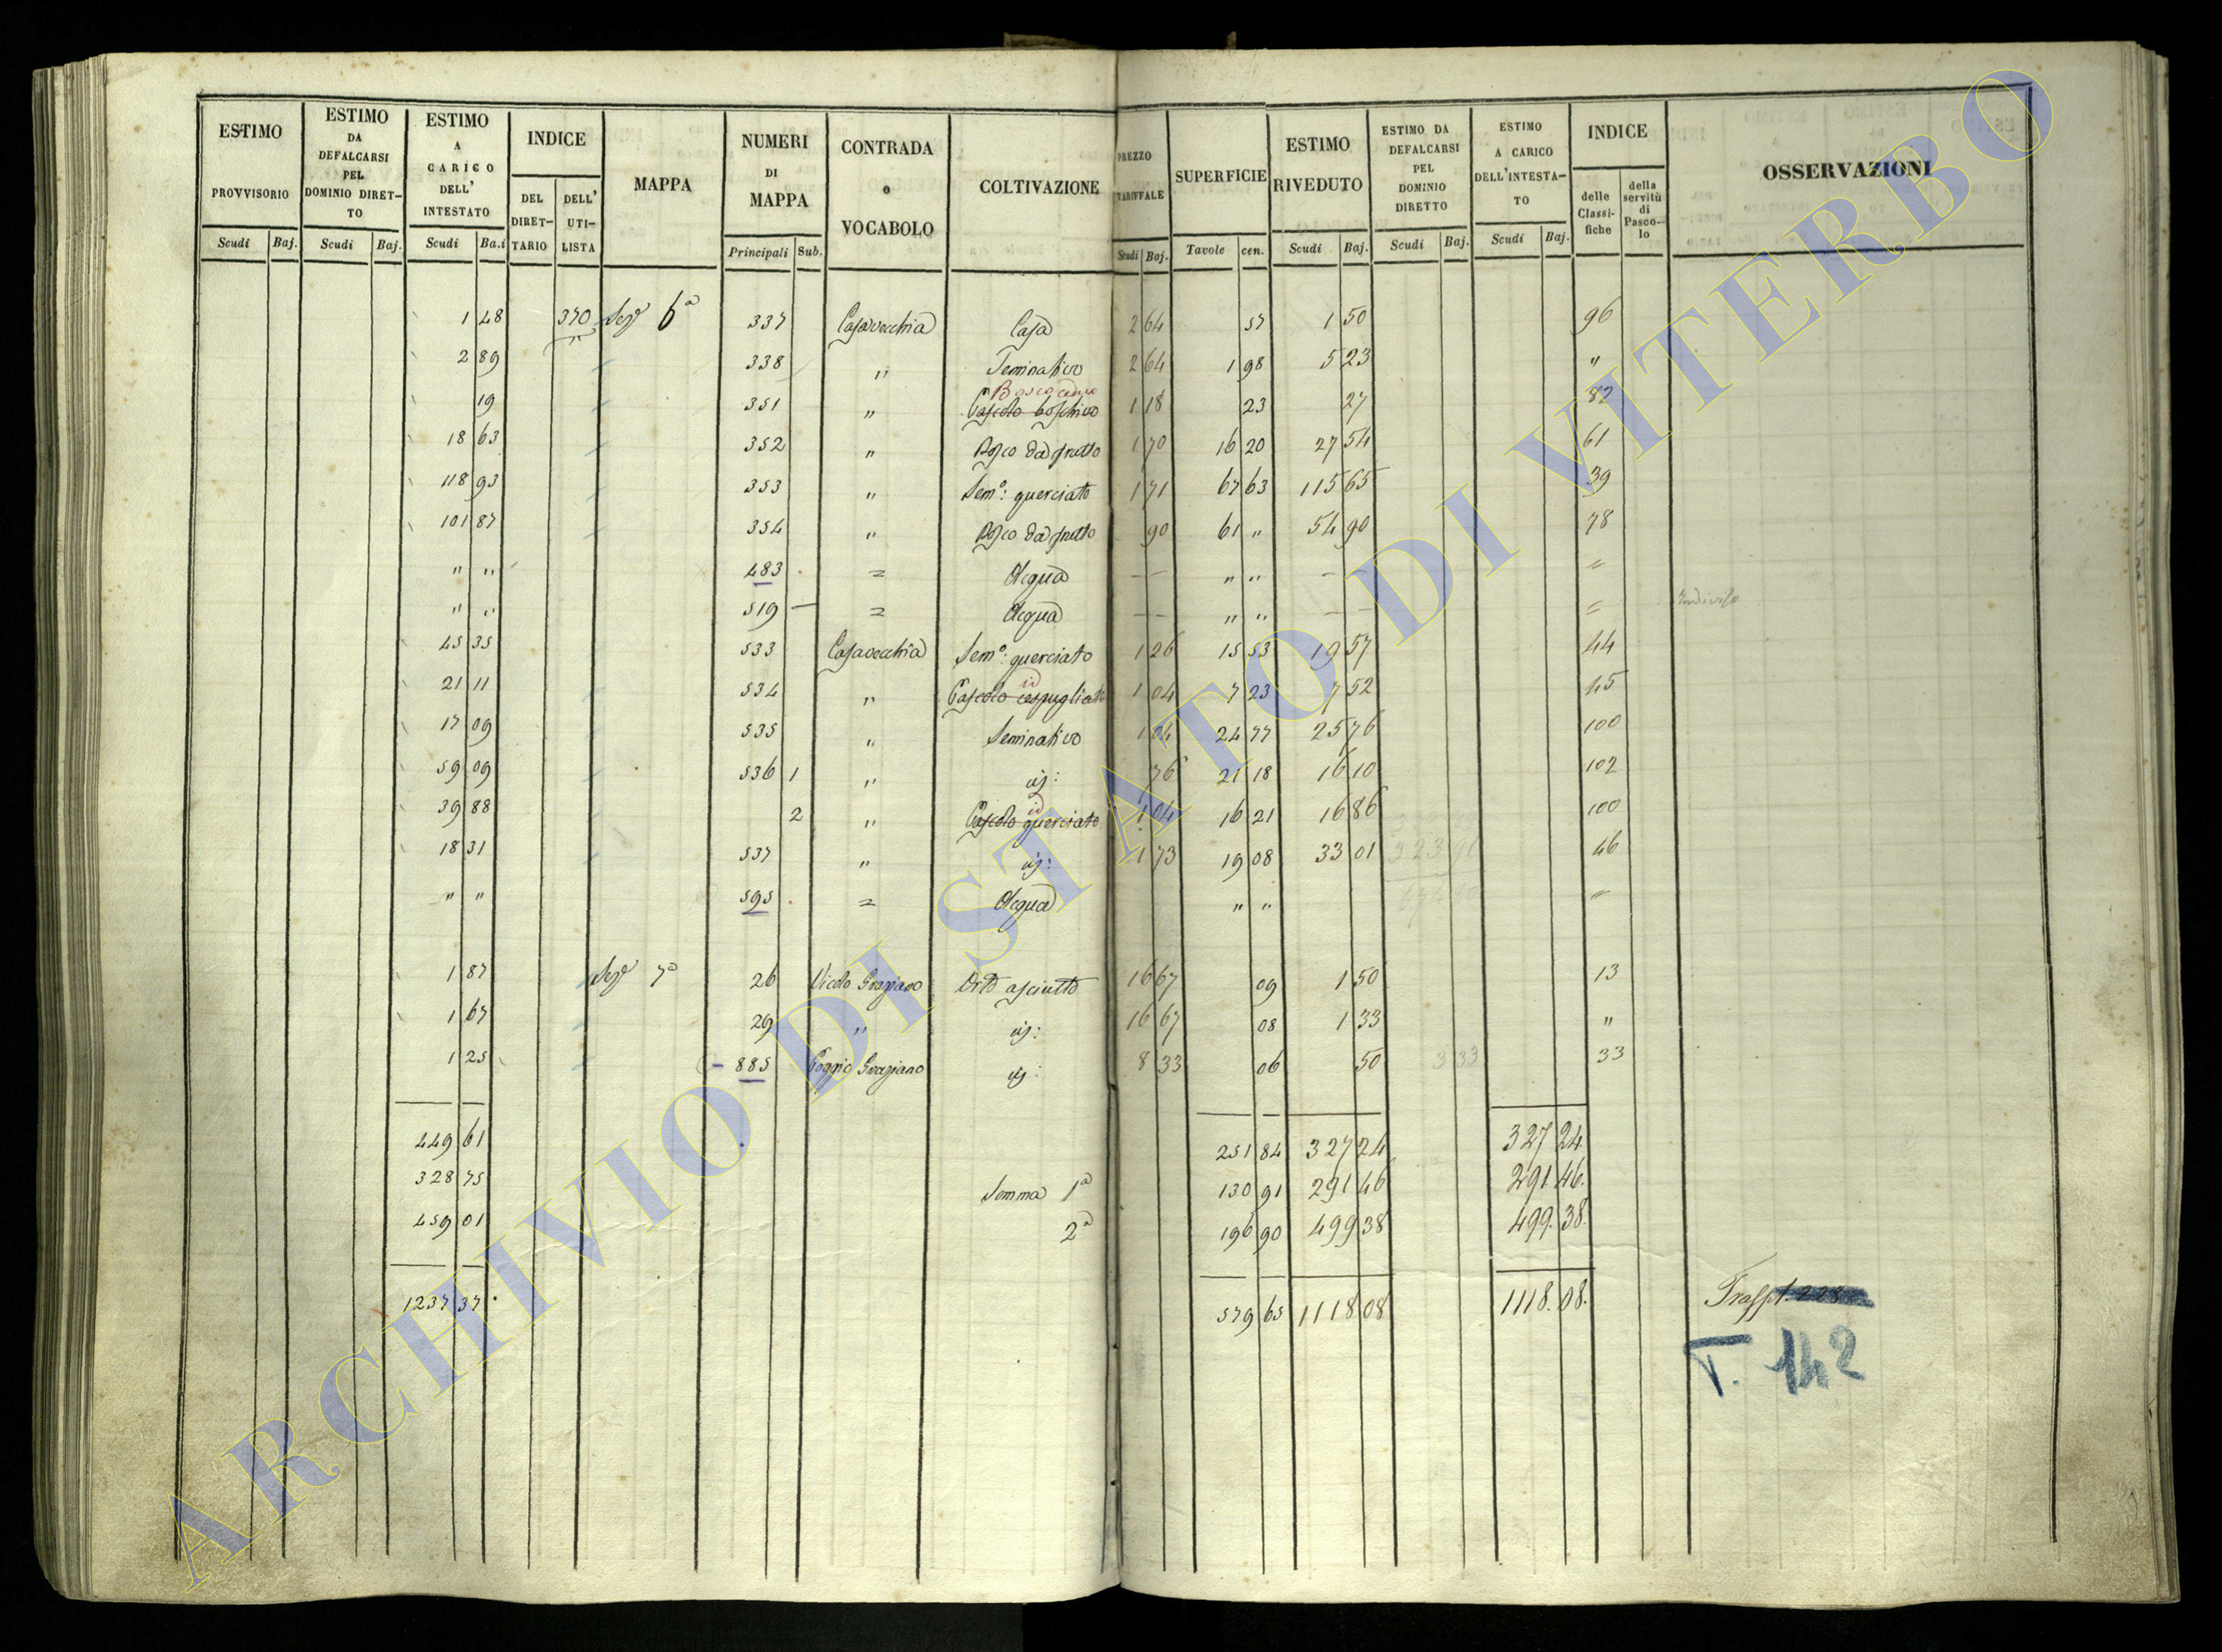 ESTIMO PROVVISORIO Scudi Baj. | ESTIMO DA DEFALCARSI PEL DOMINIO DIRET-TO Scudi Baj. | ESTIMO A CARICO DELL' INTESTATO Scudi Ba.i | INDICE DEL DIRET-TARIO DELL' UTI-LISTA | MAPPA | NUMERI DI MAPPA Principali Sub. | CONTRADA o VOCABOLO | COLTIVAZIONE | PREZZO TARIFFALE Scudi Baj. | SUPERFICIE Tavole cen. | ESTIMO RIVEDUTO Scudi Baj. | ESTIMO DA DEFALCARSI PEL DOMINIO DIRETTO Scudi Baj. | ESTIMO A CARICO DELL'INTESTA-TO Scudi Baj. | INDICE delle Classi-fiche della servitù di Pasco-lo | OSSERVAZIONI
1 48 370 Sez.e 6a 337 Casavecchia Casa 2 64 57 1 50 96
2 89 338 " Seminativo 2 64 1 98 5 23 "
Bosco ceduo
19 351 " Pascolo boschivo 1 18 23 27 82
18 63 352 " Bosco da frutto 1 70 16 20 27 54 61
118 93 353 " Sem.o: querciato 1 71 67 63 115 65 39
101 87 354 " Bosco da frutto 90 61 " 54 90 78
" " 483 = Acqua — — " " — — =
" " 519 — = Acqua — — " " — — = Indiviso
45 35 533 Casavecchia Sem.o: querciato 1 26 15 53 19 57 44
id
21 11 534 " Pascolo cespugliato 1 04 7 23 7 52 45
17 09 535 " Seminativo 1 04 24 77 25 76 100
59 09 536 1 " id: 76 21 18 16 10 102
id
39 88 2 " Pascolo querciato 1 04 16 21 16 86 100
18 31 537 " id: 1 73 19 08 33 01 323 91 46
" " 595 = Acqua " " =
1 87 Sez.e 7a 26 Vicolo Graziano Orto asciutto 16 67 09 1 50 13
1 67 29 " id: 16 67 08 1 33 "
1 25 885 Poggio Graziano id: 8 33 06 50 3 33 33
449 61 251 84 327 24 327 24
328 75 Somma 1a 130 91 291 46 291 46.
459 01 2a 196 90 499 38 499. 38.
1237 37. 579 65 1118 08 1118. 08. Trasp.
T. 142
ARCHIVIO DI STATO DI VITERBO